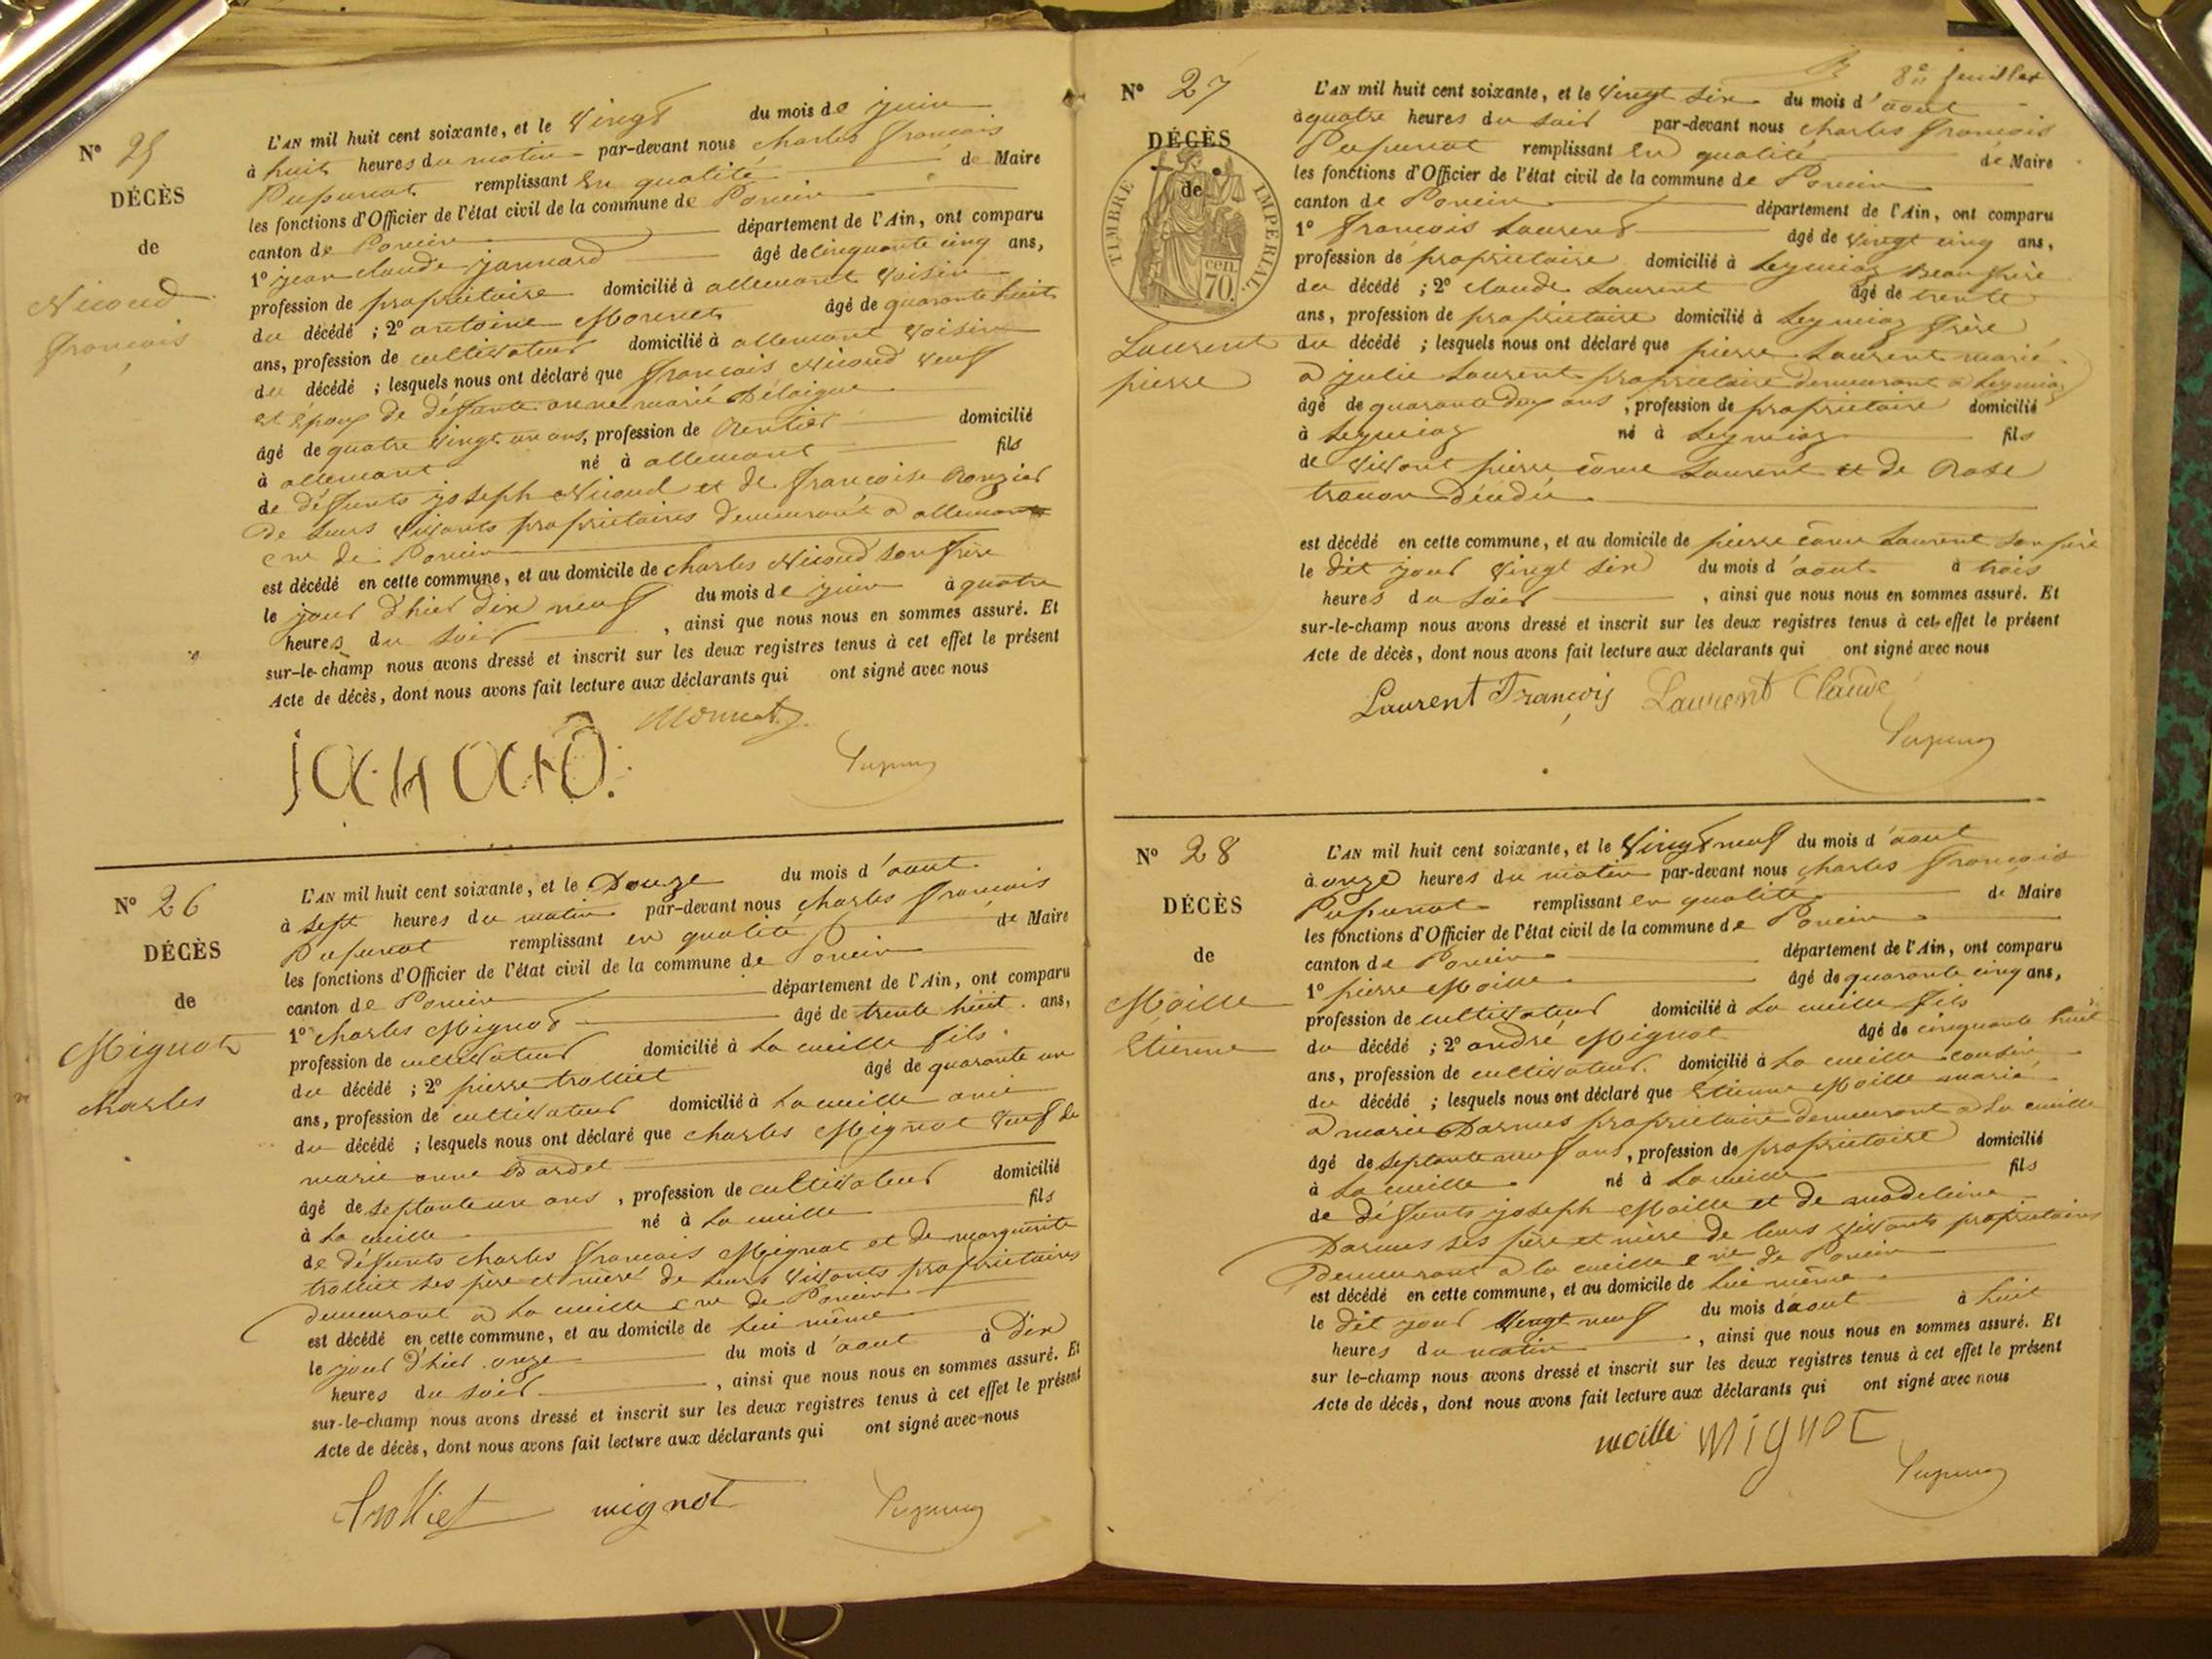 N° 25
DÉCÈS
de
Nicoud
françois
L'AN mil huit cent soixante, et le Vingt du mois de juin
à huit heures du matin par-devant nous charles françois
Pupunat remplissant en qualité de Maire
les fonctions d'Officier de l'état civil de la commune de Poncin
canton de Poncin département de l'Ain, ont comparu
1° jean claude jannard âgé de cinquante cinq ans,
profession de propriétaire domicilié à allemant Voisin
du décédé ; 2° antoine Monnet âgé de quarante huit
ans, profession de cultivateur domicilié à allemant Voisin
du décédé ; lesquels nous ont déclaré que françois Nicoud Veuf
et Epoux de défunte anne marie
âgé de quatre Vingt un ans, profession de Rentier domicilié
à allemant né à allemant fils
de défunts joseph Nicoud et de françoise
de leurs Vivants propriétaires demeurant a allemant
cne de Poncin
est décédé en cette commune, et au domicile de charles Nicoud son frère
le jour d'hier dix neuf du mois de juin à quatre
heures du soir , ainsi que nous nous en sommes assuré. Et
sur-le-champ nous avons dressé et inscrit sur les deux registres tenus à cet effet le présent
Acte de décès, dont nous avons fait lecture aux déclarants qui ont signé avec nous
Monnet
N° 26
DÉCÈS
de
Mignot
charles
L'AN mil huit cent soixante, et le Douze du mois d'aout
à sept heures du matin par-devant nous charles françois
Pupunat remplissant en qualité de Maire
les fonctions d'Officier de l'état civil de la commune de Poncin
canton de Poncin département de l'Ain, ont comparu
1° charles Mignot âgé de trente huit ans,
profession de cultivateur domicilié à La cueille fils
du décédé ; 2° pierre trolliet âgé de quarante un
ans, profession de cultivateur domicilié à La cueille ami
du décédé ; lesquels nous ont déclaré que charles Mignot Veuf de
marie anne Bardet
âgé de septante un ans , profession de cultivateur domicilié
à La cueille né à La cueille fils
de défunts charles françois Mignot et de marguerite
trolliet ses père et mère de leurs Vivants propriétaires
demeurant a La cueille cne de Poncin
est décédé en cette commune, et au domicile de Lui même
le jour d'hier onze du mois d'aout à Dix
heures du soir , ainsi que nous nous en sommes assuré. Et
sur-le-champ nous avons dressé et inscrit sur les deux registres tenus à cet effet le présent
Acte de décès, dont nous avons fait lecture aux déclarants qui ont signé avec nous
trolliet mignot
8e feuillet
N° 27
DÉCÈS
de
TIMBRE IMPÉRIAL
cen. 70.
Laurent
pierre
L'AN mil huit cent soixante, et le Vingt six du mois d'aout
à quatre heures du soir par-devant nous charles françois
Pupunat remplissant en qualité de Maire
les fonctions d'Officier de l'état civil de la commune de Poncin
canton de Poncin département de l'Ain, ont comparu
1° françois Laurent âgé de Vingt cinq ans,
profession de propriétaire domicilié à Leymiaz Beau frère
du décédé ; 2° claude Laurent âgé de trente
ans, profession de propriétaire domicilié à Leymiaz frère
du décédé ; lesquels nous ont déclaré que pierre Laurent marié
a julie Laurent propriétaire demeurant a Leymiaz
âgé de quarante deux ans , profession de propriétaire domicilié
à Leymiaz né à Leymiaz fils
de Vivant pierre côme Laurent et de Rose
est décédé en cette commune, et au domicile de pierre côme Laurent son père
le dit jour Vingt six du mois d'aout à trois
heures du soir , ainsi que nous nous en sommes assuré. Et
sur-le-champ nous avons dressé et inscrit sur les deux registres tenus à cet effet le présent
Acte de décès, dont nous avons fait lecture aux déclarants qui ont signé avec nous
Laurent François Laurent Claude
N° 28
DÉCÈS
de
Moille
Etienne
L'AN mil huit cent soixante, et le Vingt neuf du mois d'aout
à onze heures du matin par-devant nous charles françois
Pupunat remplissant en qualité de Maire
les fonctions d'Officier de l'état civil de la commune de Poncin
canton de Poncin département de l'Ain, ont comparu
1° pierre Moille âgé de quarante cinq ans,
profession de cultivateur domicilié à La cueille fils
du décédé ; 2° andré Mignot âgé de cinquante huit
ans, profession de cultivateur domicilié à La cueille cousin
du décédé ; lesquels nous ont déclaré que Etienne Moille marié
a marie Darmes propriétaire demeurant a La cueille
âgé de septante neuf ans , profession de propriétaire domicilié
à La cueille né à La cueille fils
de défunts joseph Moille et de madeleine
Darmes ses père et mère de leurs vivants propriétaires
demeurant a la cueille cne de Poncin
est décédé en cette commune, et au domicile de Lui même
le dit jour Vingt neuf du mois d'aout à huit
heures du matin , ainsi que nous nous en sommes assuré. Et
sur le-champ nous avons dressé et inscrit sur les deux registres tenus à cet effet le présent
Acte de décès, dont nous avons fait lecture aux déclarants qui ont signé avec nous
moille mignot